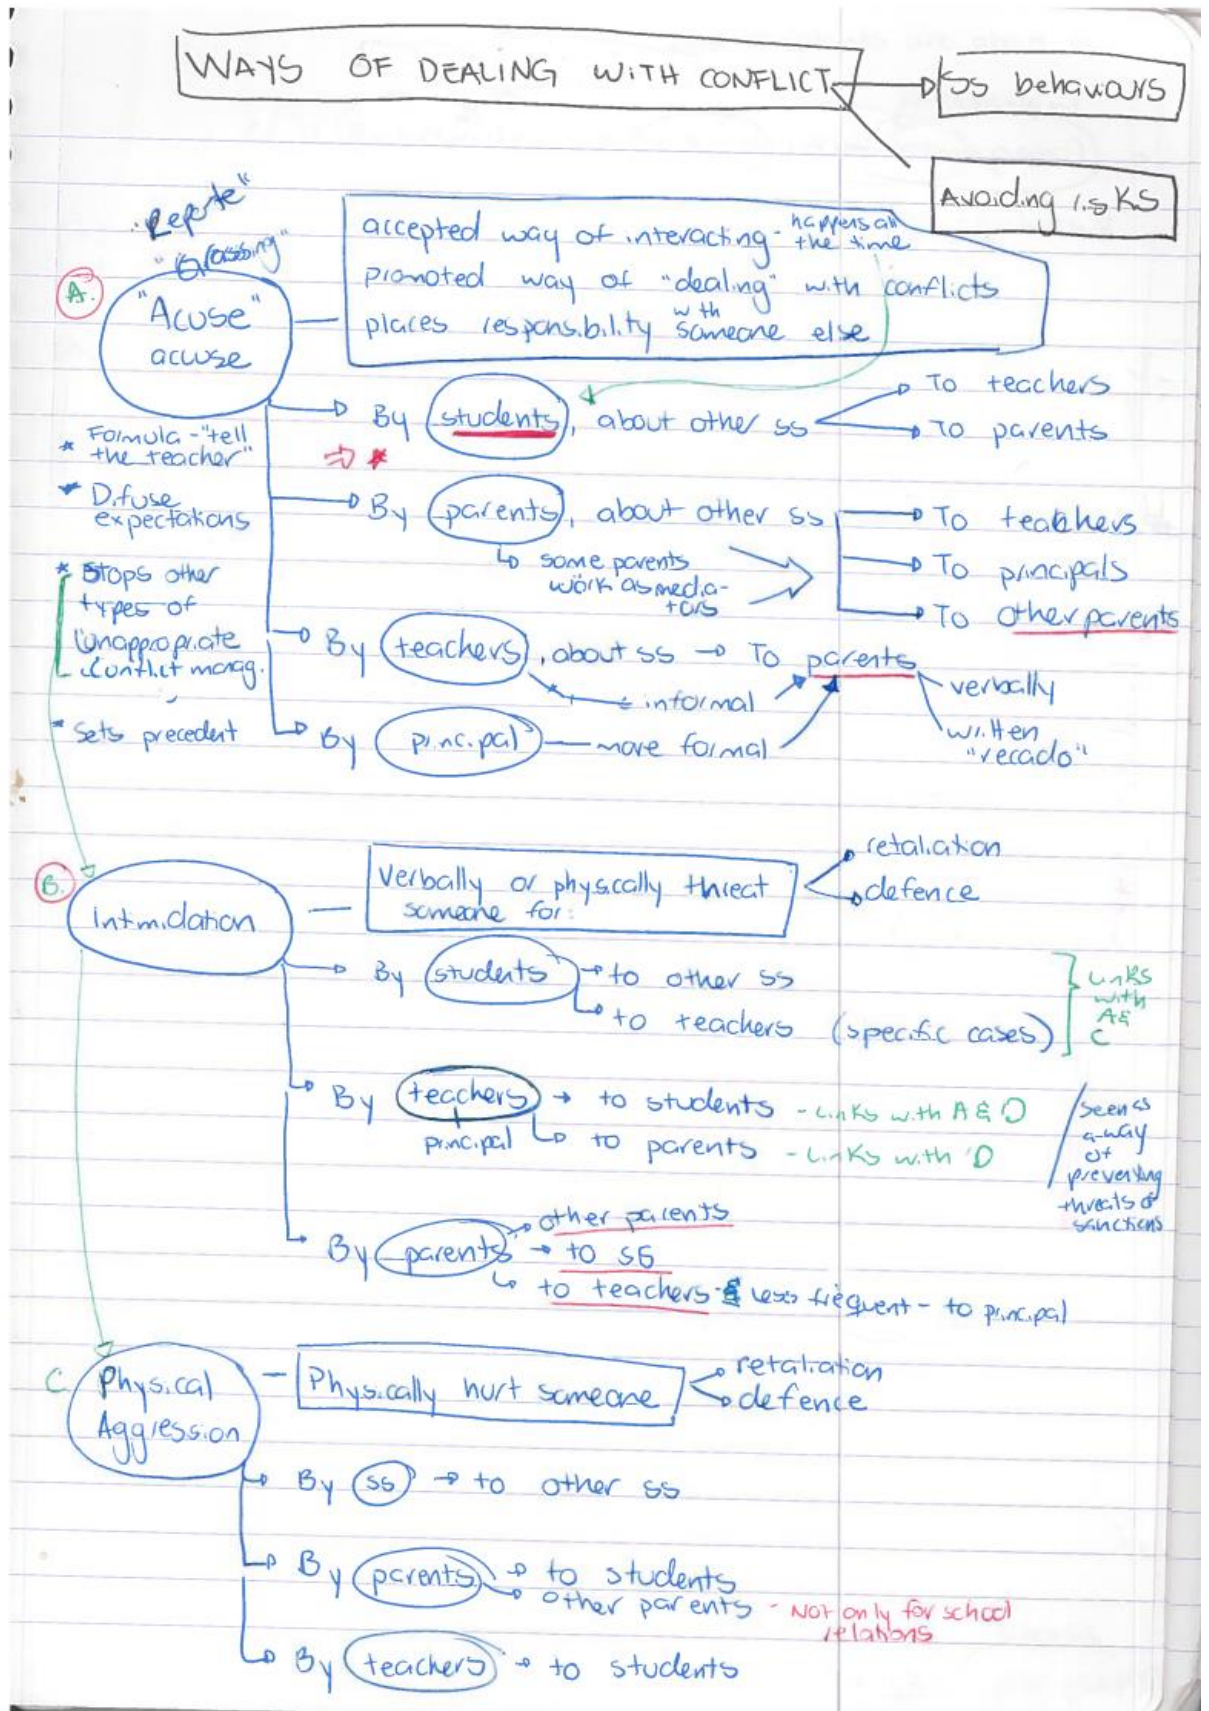 WAYS OF DEALING WITH CONFLICT
Ss behaviours
Avoiding risks
"Reporte"
"Grassing"
A.
"Acuse"
accuse
accepted way of interacting - happens all the time
promoted way of "dealing" with conflicts
places responsibility with someone else
By students, about other ss
To teachers
To parents
* Formula - "tell
the teacher"
* Difuse
expectations
By parents, about other ss
some parents
work as media-
tors
To teachers
To principals
To other parents
* Stops other
types of
unappropriate
conflict manag.
By teachers, about ss → To parents
informal
verbally
written
"recado"
* Sets precedent
By principal — more formal
B.
Intimidation
Verbally or physically threat
someone for:
retaliation
defence
By students → to other ss
to teachers (specific cases)
Links
with
A &
C
By teachers → to students - Links with A & D
principal
to parents - Links with D
Seen as
a way
of
preventing
threats or
sanctions
By parents
other parents
→ to ss
to teachers - & less frequent - to principal
C.
Physical
Aggression
Physically hurt someone
retaliation
defence
By ss → to other ss
By parents → to students
other parents - Not only for school
relations
By teachers → to students